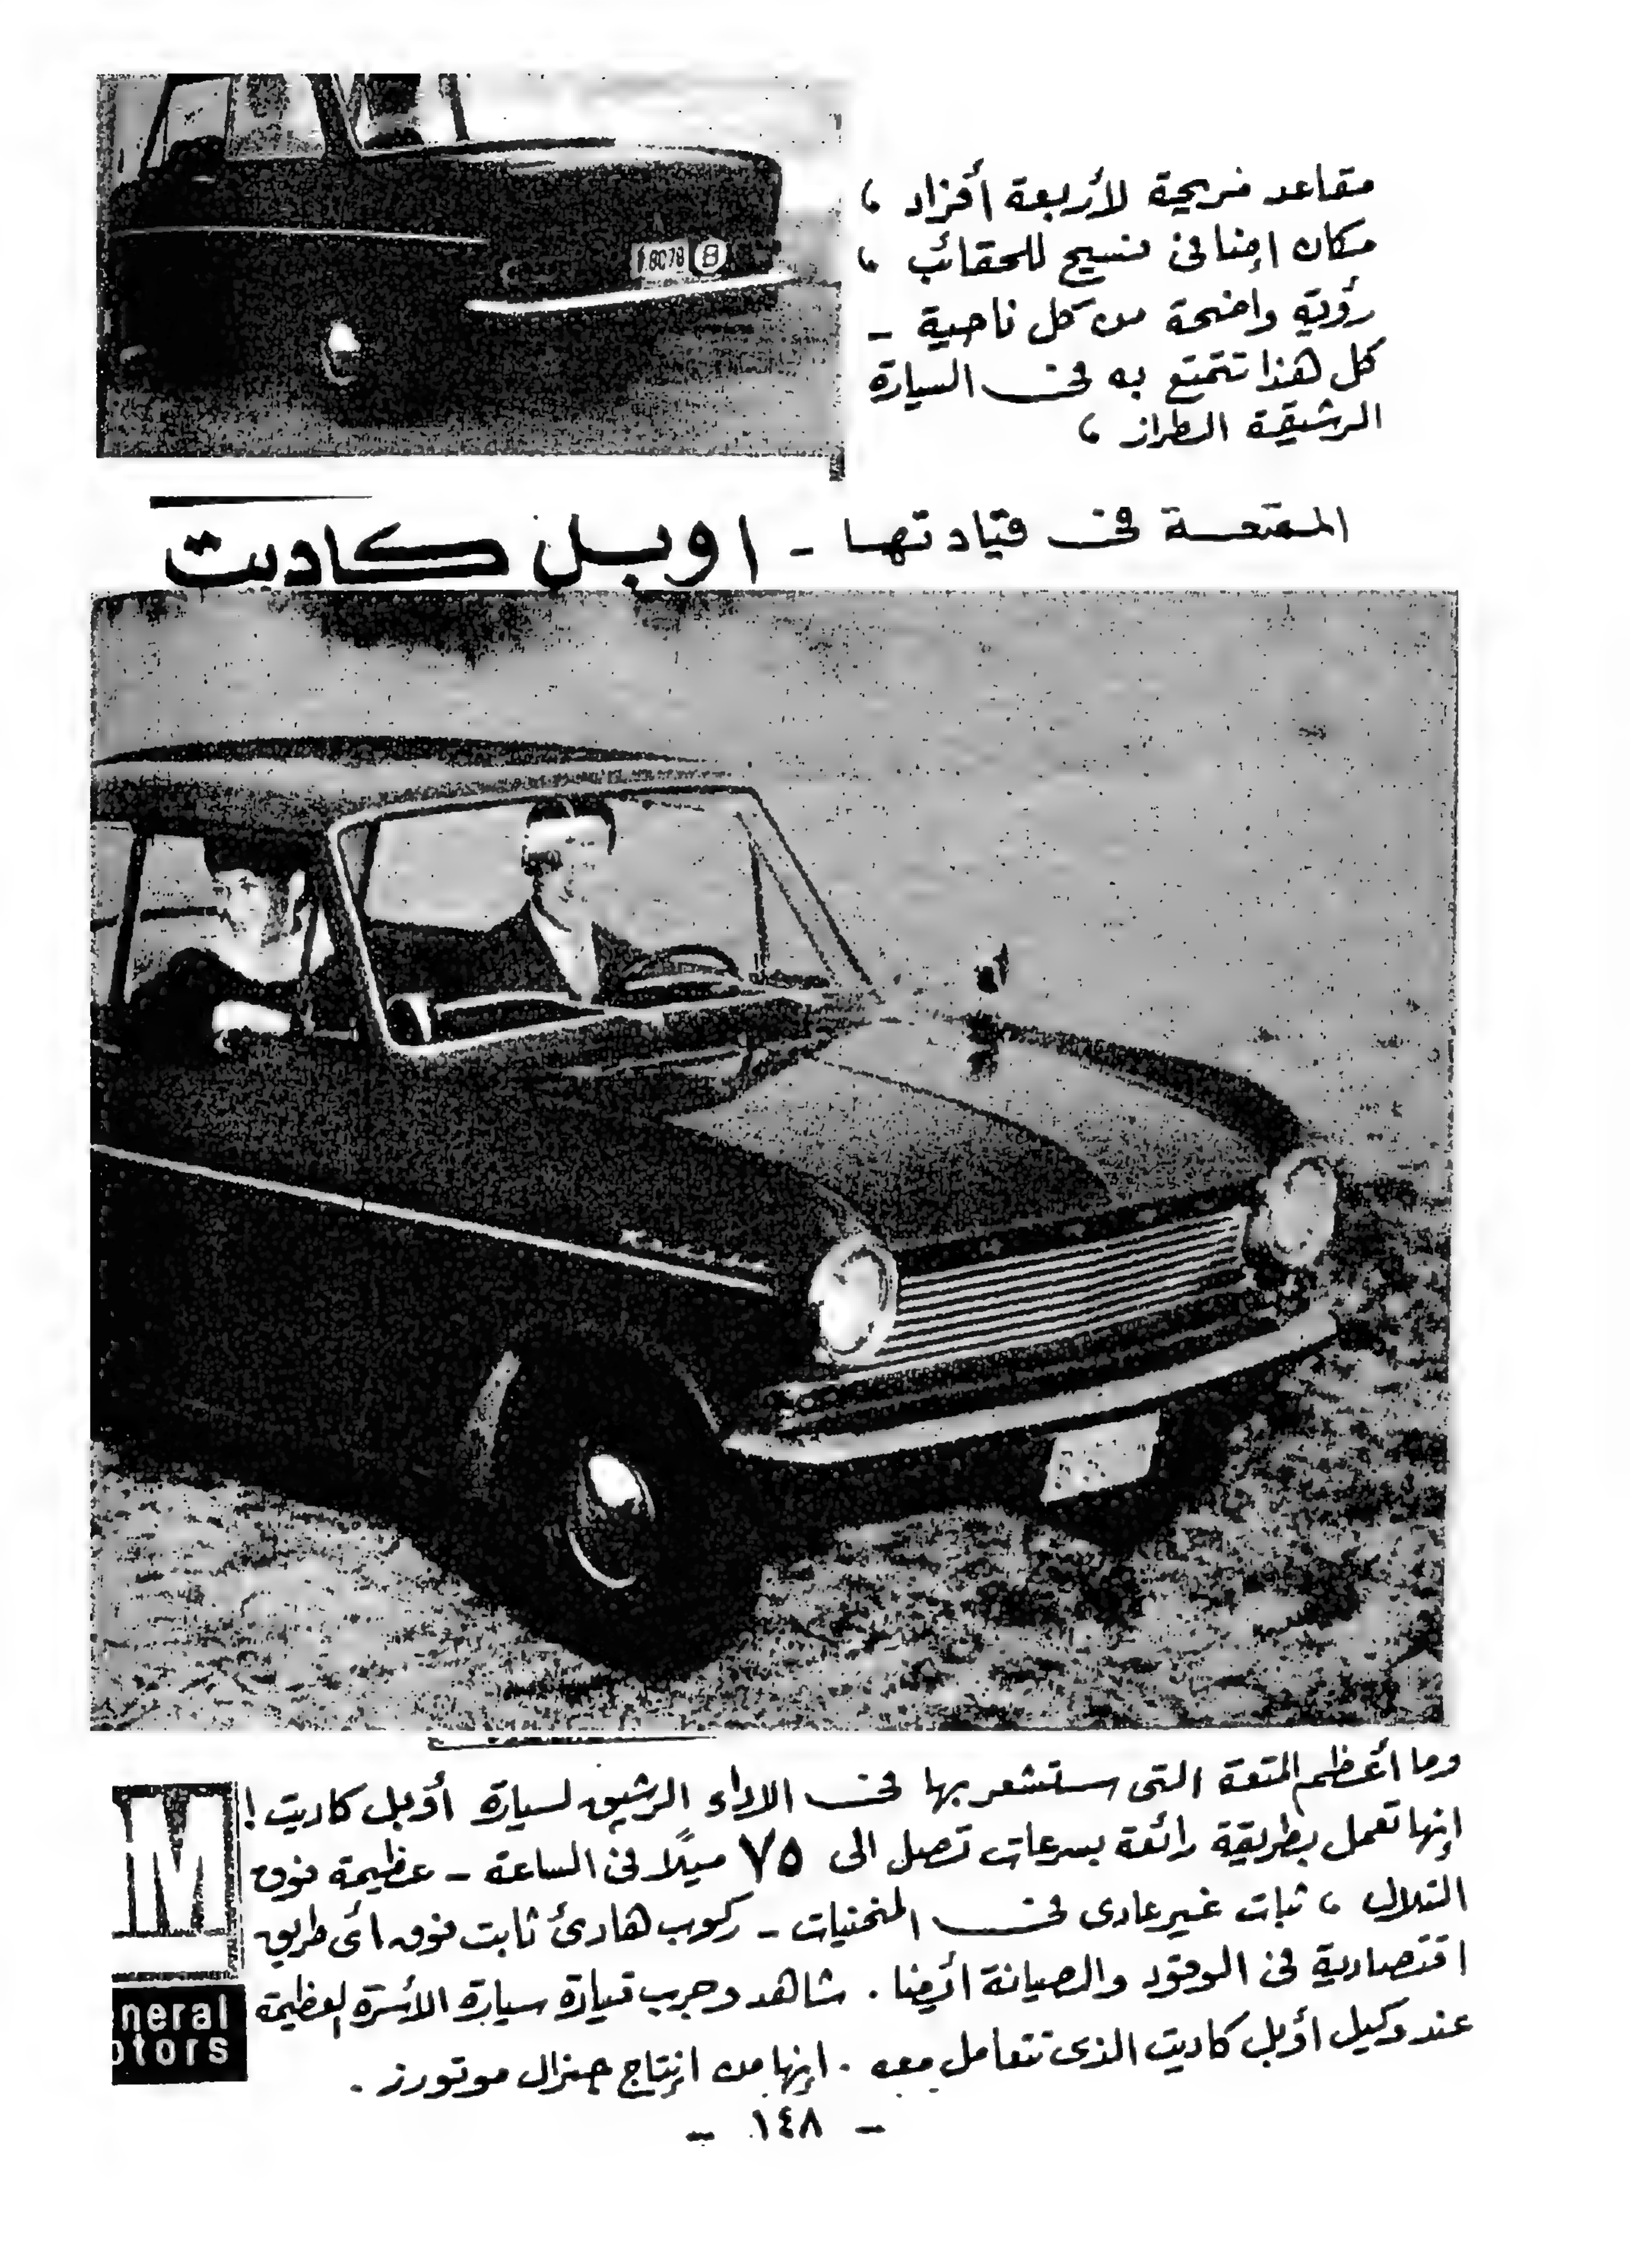 مقاعد مريحة لأربعة أفراد ،
مكان إضافى فسيح للحقائب ،
رؤية واضحة من كل ناحية -
كل هذا تتمتع به فى السيارة
الرشيقة الطراز ،
الممتعة فى قيادتها - اوبل كاديت
8078 8
وما أعظم المتعة التى ستشعر بها فى الاداء الرشيق لسيارة أوبل كاديت !
إنها تعمل بطريقة رائعة بسرعات تصل الى ٧٥ ميلاً فى الساعة - عظيمة فوق
التلال ، ثبات غير عادى فى المنحنيات - ركوب هادئ ثابت فوق أى طريق
اقتصادية فى الوقود والصيانة أيضا . شاهد وجرب قيادة سيارة الأسرة العظيمة
عند وكيل أوبل كاديت الذى تتعامل معه . إنها من إنتاج جنرال موتورز .
M
neral
otors
- ١٤٨ -